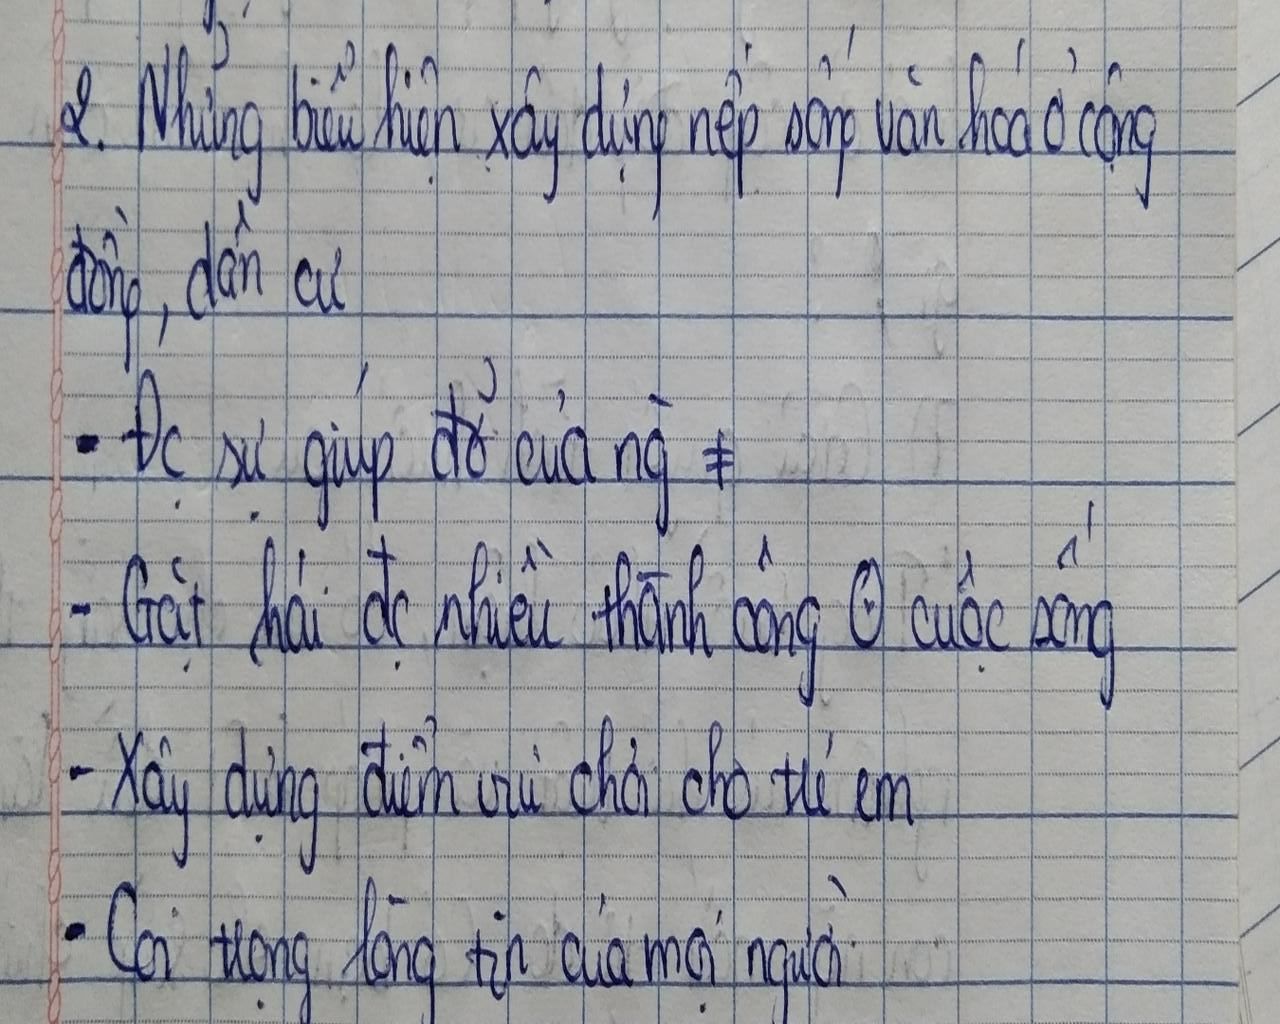 2. Những biểu hiện xây dựng nếp sống văn hoá ở cộng
đồng, dân cư
- Đc sự giúp đỡ của ng ≠
- Gặt hái đc nhiều thành công cuộc sống
- Xây dựng điểm vui chơi cho trẻ em
- Coi trọng lòng tin của mọi người